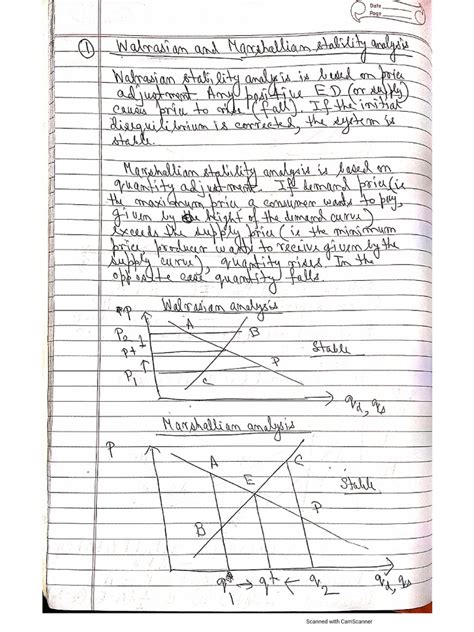 Date
Page
① Walrasian and Marshallian stability analysis
Walrasian stability analysis is based on price
adjustment. Any positive ED (or supply)
causes price to rise (fall). If the initial
disequilibrium is corrected, the system is
stable.
Marshallian stability analysis is based on
quantity adjustment. If demand price (ie
the maximum price a consumer wants to pay,
given by the height of the demand curve)
exceeds the supply price (ie the minimum
price, producer wants to receive given by the
supply curve), quantity rises. In the
opposite case quantity falls.
Walrasian analysis
P
A
B
P2
Stable
P
P1
C
qd, qs
Marshallian analysis
P
A
C
E
Stable
P
B
q1 → q* ← q2
qd, qs
Scanned with CamScanner